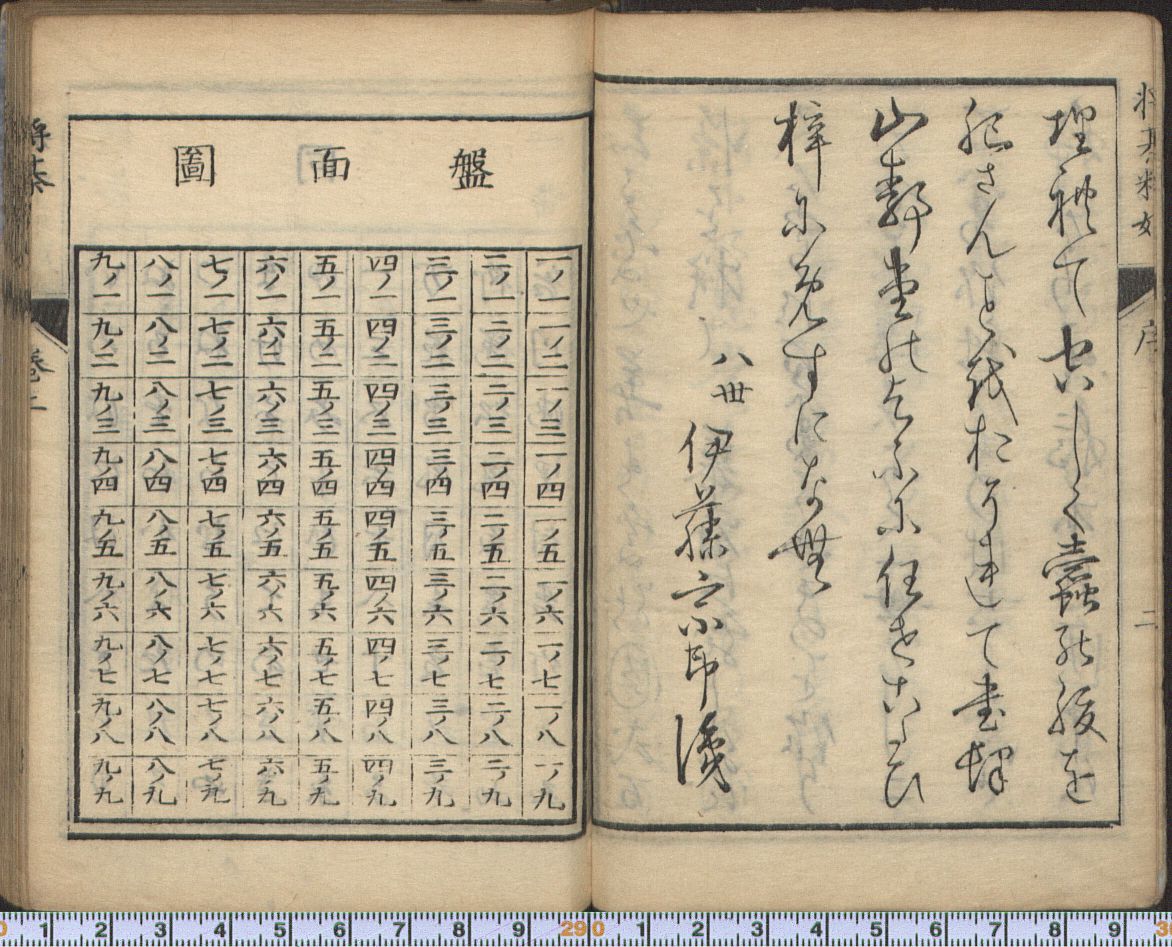 埋れて空しく蠹の腹を
肥さんを我おそれて書肆
山静堂の乞に任せこたひ
梓に免すになむ
八世 伊藤宗印識
序
二
盤面圖
一ノ一 二ノ一 三ノ一 四ノ一 五ノ一 六ノ一 七ノ一 八ノ一 九ノ一
一ノ二 二ノ二 三ノ二 四ノ二 五ノ二 六ノ二 七ノ二 八ノ二 九ノ二
一ノ三 二ノ三 三ノ三 四ノ三 五ノ三 六ノ三 七ノ三 八ノ三 九ノ三
一ノ四 二ノ四 三ノ四 四ノ四 五ノ四 六ノ四 七ノ四 八ノ四 九ノ四
一ノ五 二ノ五 三ノ五 四ノ五 五ノ五 六ノ五 七ノ五 八ノ五 九ノ五
一ノ六 二ノ六 三ノ六 四ノ六 五ノ六 六ノ六 七ノ六 八ノ六 九ノ六
一ノ七 二ノ七 三ノ七 四ノ七 五ノ七 六ノ七 七ノ七 八ノ七 九ノ七
一ノ八 二ノ八 三ノ八 四ノ八 五ノ八 六ノ八 七ノ八 八ノ八 九ノ八
一ノ九 二ノ九 三ノ九 四ノ九 五ノ九 六ノ九 七ノ九 八ノ九 九ノ九
0 1 2 3 4 5 6 7 8 9 29 0 1 2 3 4 5 6 7 8 9 3